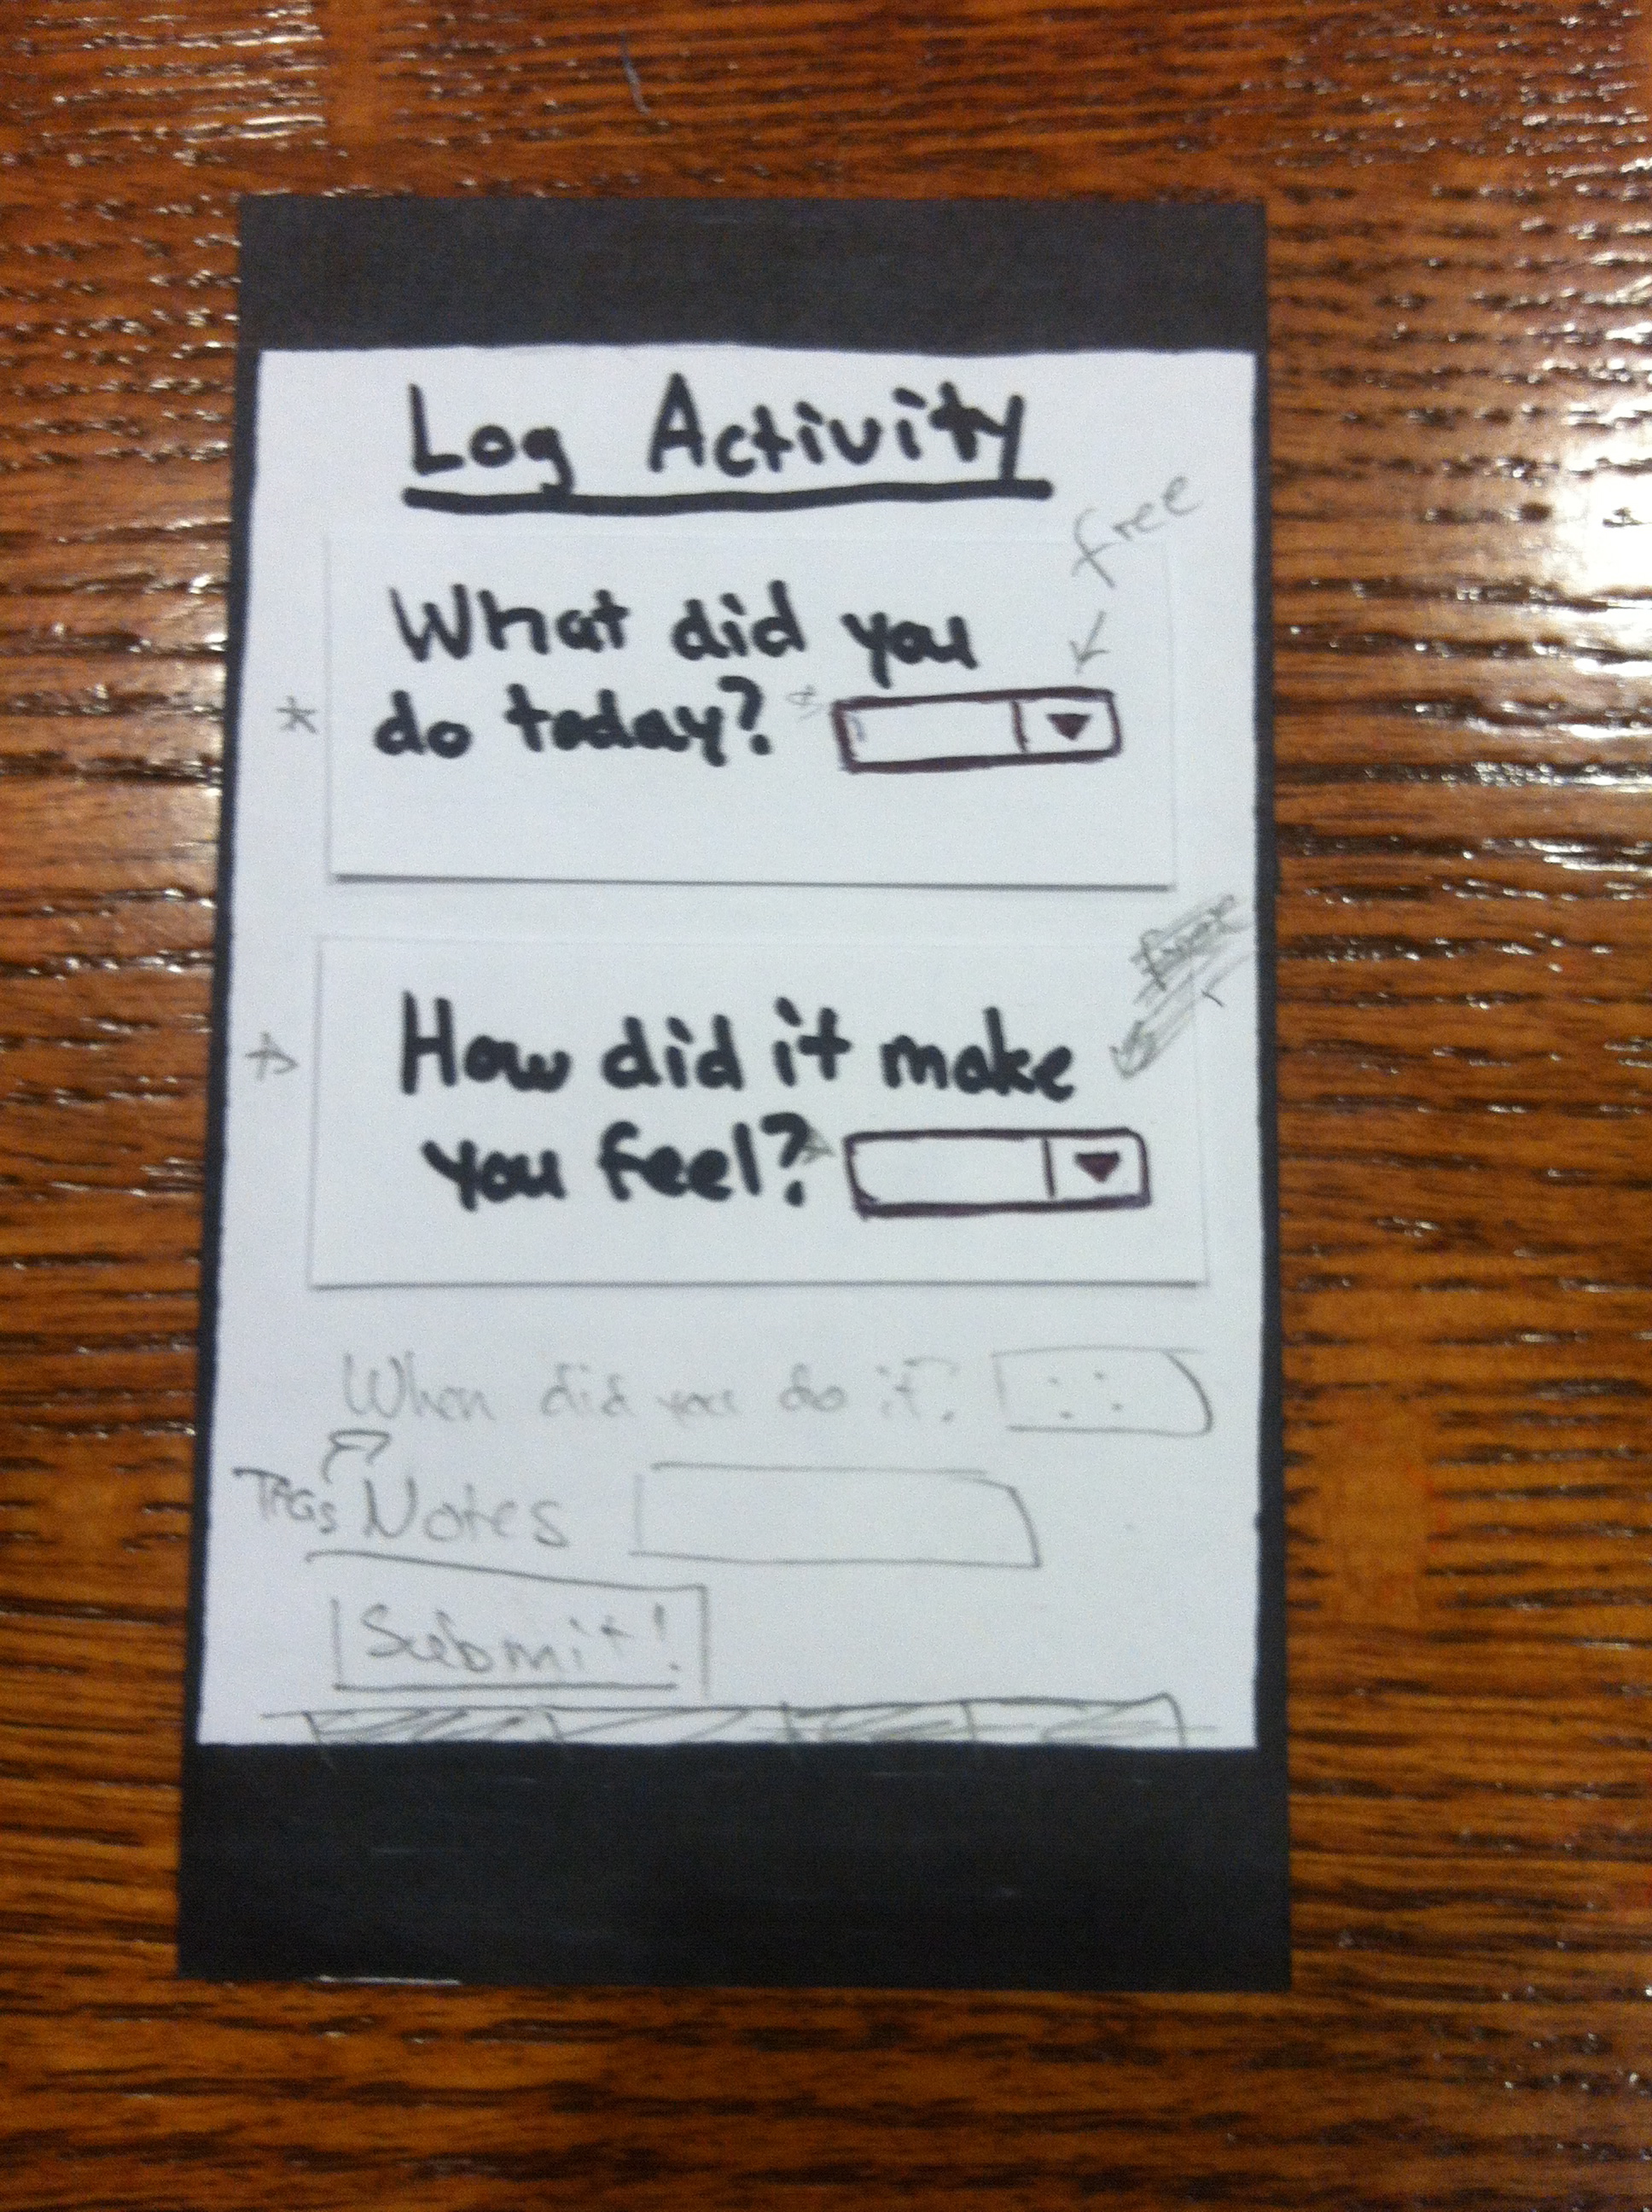 Log Activity
free
What did you
* do today? *
How did it make
you feel? *
When did you do it? : :
TAGS Notes
Submit!